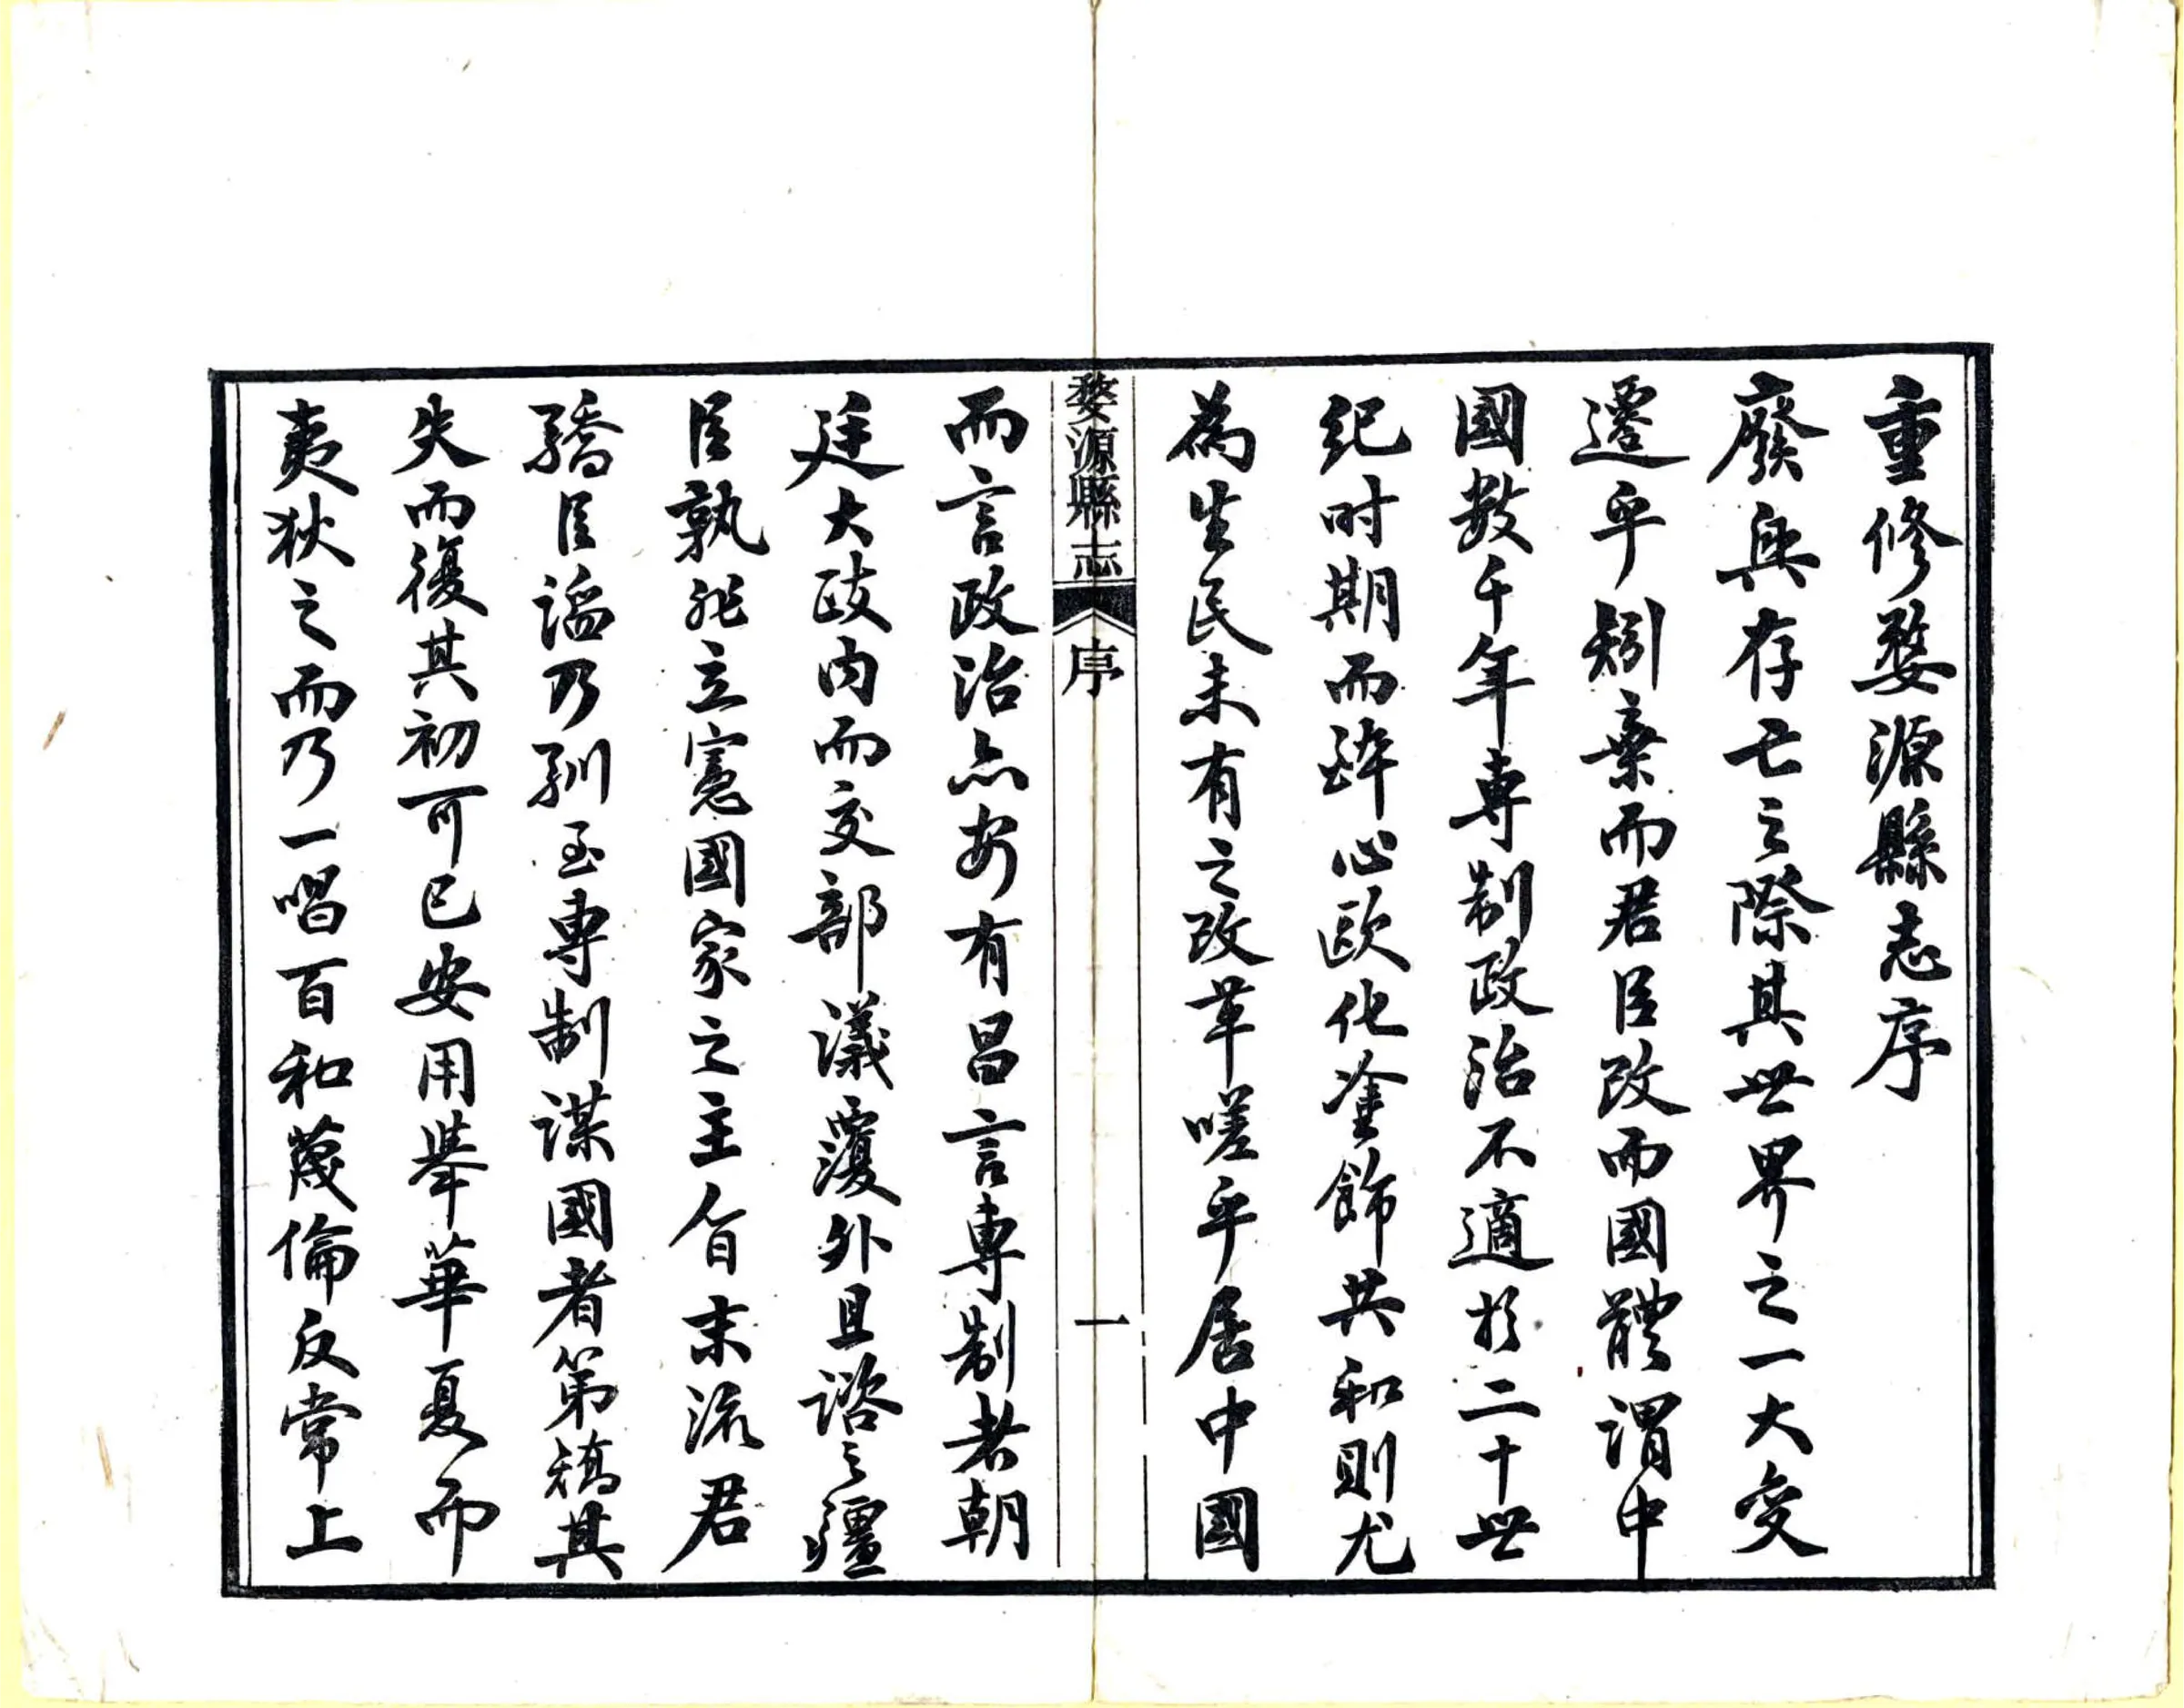 重修婺源縣志序
廢興存亡之際其世界之一大變
遷乎矧棄而君臣改而國體謂中
國數千年專制政治不適於二十世
紀时期而醉心歐化塗飾共和則尤
為生民未有之改革嗟乎居中國
婺源縣志
序
一
而言政治亦安有昌言專制者朝
廷大政内而交部議覆外且諮之疆
臣孰非立憲國家之主旨末流君
驕臣諂乃馴至專制謀國者第矯其
失而復其初可已安用舉華夏而
夷狄之而乃一唱百和蔑倫反常上